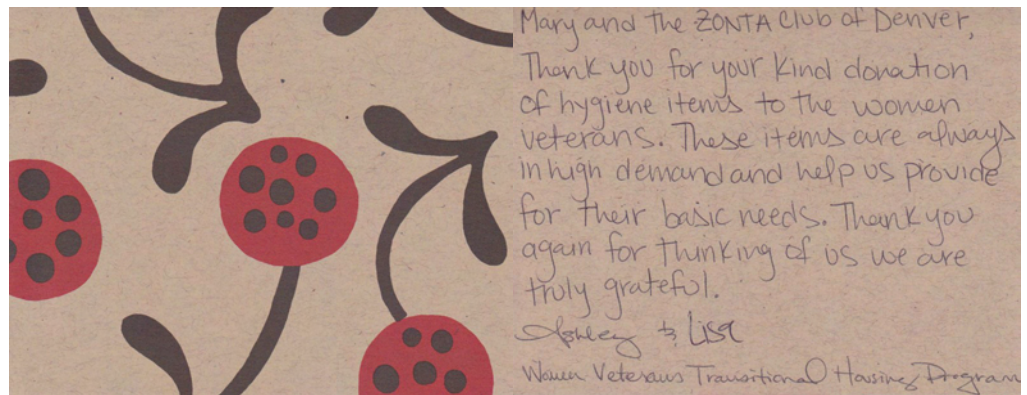 Mary and the ZONTA Club of Denver,
Thank you for your kind donation
of hygiene items to the women
veterans. These items are always
in high demand and help us provide
for their basic needs. Thank you
again for thinking of us we are
truly grateful.
Ashley & Lisa
Women Veterans Transitional Housing Program